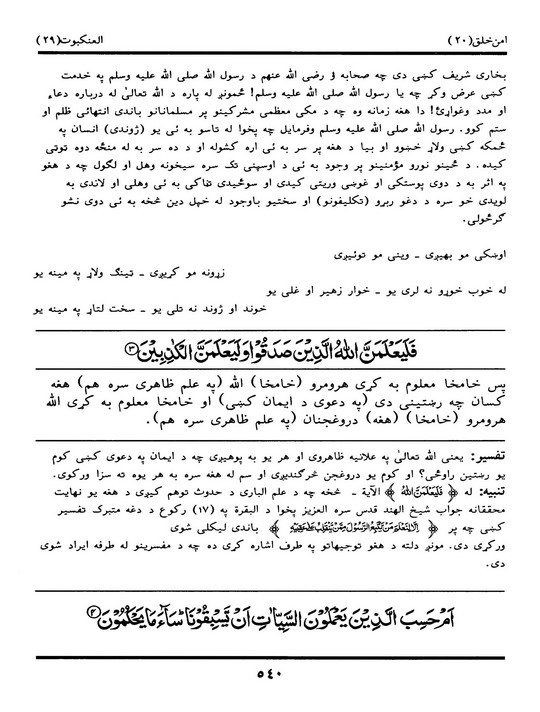 امن خلق (۲۰)
العنکبوت (۲۹)
بخاری شریف کښی دی چه صحابه ؤ رضی الله عنهم د رسول الله صلی الله علیه وسلم په خدمت
کښی عرض وکړ چه یا رسول الله صلی الله علیه وسلم! ځمونږ له پاره د الله تعالیٰ له درباره دعاء
او مدد وغواړئ! دا هغه زمانه وه چه د مکی معظمی مشرکینو پر مسلمانانو باندی انتهائی ظلم او
ستم کوو. رسول الله صلی الله علیه وسلم وفرمایل چه پخوا له تاسو به ئی یو (ژوندی) انسان په
ځمکه کښی ولاړ خښوو او بیا د هغه پر سر به ئی اره کشوله او د ده سر به له منځه دوه توتی
کیده. د ځینو نورو مؤمنینو پر وجود به ئی د اوسپنی تک سره سیخونه وهل او لګول چه د هغو
په اثر به د دوی پوستکی او غوښی وریتی کیدی او سوځیدی ټاکی به ئی وهلی او لاندی به
لویدی خو سره د دغو ربړو (تکلیفونو) او سختیو باوجود له خپل دین څخه به ئی دوی نشو
ګرځولی.
اوښکی مو بهیږی ـ وینی مو توئیږی
زړونه مو کړیږی ـ ټینګ ولاړ په مینه یو
له خوب خوړو نه لری یو ـ خوار زهیر او غلی یو
خوند او ژوند نه تلی یو ـ سخت لتاړ په مینه یو
فَلَيَعْلَمَنَّ اللَّهُ الَّذِينَ صَدَقُوا وَلَيَعْلَمَنَّ الْكَاذِبِينَ ۳
پس خامخا معلوم به کړی هرومرو (خامخا) الله (په علم ظاهری سره هم) هغه
کسان چه رښتینی دی (په دعوی د ایمان کښی) او خامخا معلوم به کړی الله
هرومرو (خامخا) (هغه) دروغجنان (په علم ظاهری سره هم).
تفسیر: یعنی الله تعالیٰ په علانیه ظاهروی او هر یو به پوهیږی چه د ایمان په دعوی کښی کوم
یو رښتین راوځی؟ او کوم یو دروغجن څرګندیږی او سم له هغه سره به هر یوه ته سزا ورکوی.
تنبیه: له ﴿ فَلَيَعْلَمَنَّ اللَّهُ ﴾ الآیة ـ څخه چه د علم الباری د حدوث توهم کیږی د هغه یو نهایت
محققانه جواب شیخ الهند قدس سره العزیز پخوا د البقرة په (۱۷) رکوع د دغه متبرک تفسیر
کښی چه پر ﴿ إِلَّا لِنَعْلَمَ مَنْ يَتَّبِعُ الرَّسُولَ مِمَّنْ يَنْقَلِبُ عَلَىٰ عَقِبَيْهِ ﴾ باندی لیکلی شوی
ورکړی دی. مونږ دلته د هغو توجیهاتو په طرف اشاره کړی ده چه د مفسرینو له طرفه ایراد شوی
دی.
أَمْ حَسِبَ الَّذِينَ يَعْمَلُونَ السَّيِّئَاتِ أَنْ يَسْبِقُونَا سَاءَ مَا يَحْكُمُونَ ۴
۵۴۰